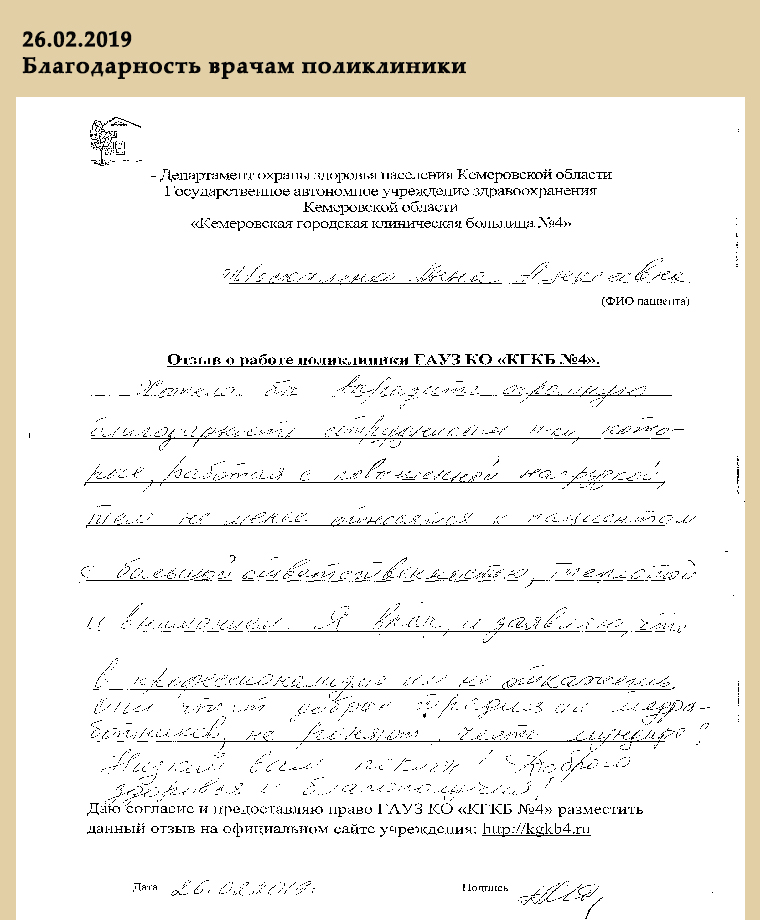 26.02.2019
Благодарность врачам поликлиники
- Департамент охраны здоровья населения Кемеровской области
Государственное автономное учреждение здравоохранения
Кемеровской области
«Кемеровская городская клиническая больница №4»
Анна
(ФИО пациента)
Отзыв о работе поликлиники ГАУЗ КО «КГКБ №4».
Хотела бы выразить огромную
благодарность сотрудникам п-ки, кото-
рые, работая с повышенной нагрузкой,
тем не менее относятся к пациентам
с большой ответственностью, теплотой
и вниманием. Я врач, и заявляю, что
в профессионализме им не откажешь.
Они чтят добрые традиции медра-
ботников, не роняют честь мундира!
Низкий вам поклон! Доброго
здоровья и благополучия!
Даю согласие и предоставляю право ГАУЗ КО «КГКБ №4» разместить
данный отзыв на официальном сайте учреждения: http://kgkb4.ru
Дата 26.02.2019г. Подпись